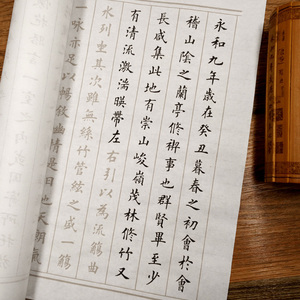 永和九年歲在癸丑暮春之初會於會
稽山陰之蘭亭脩禊事也群賢畢至少
長咸集此地有崇山峻嶺茂林脩竹又
有清流激湍暎帶左右引以為流觴曲
水列坐其次雖無絲竹管絃之盛一觴
一詠亦足以暢敘幽情是日也天朗氣